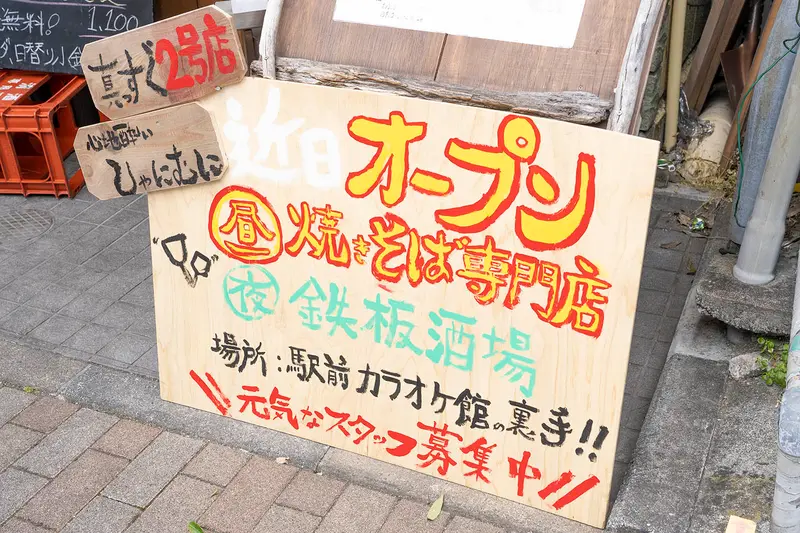 無料! 1,100
真っすぐ2号店
心地酔い
しゃにむに
近日オープン
昼 焼きそば専門店
夜 鉄板酒場
場所:駅前カラオケ館の裏手!!
\\元気なスタッフ募集中//